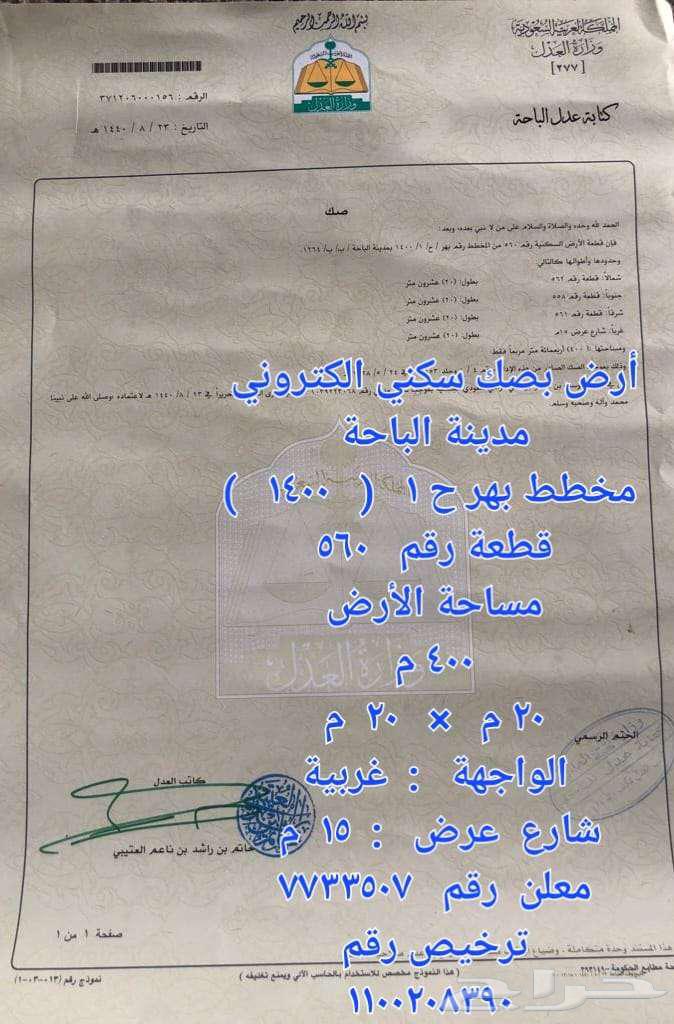 بسم الله الرحمن الرحيم
المملكة العربية السعودية
وزارة العدل
[٢٧٧]
كتابة عدل الباحة
وزارة العدل
الرقم : ٣٧١٢٠٦٠٠٠١٥٦
التاريخ : ٢٣ / ٨ / ١٤٤٠ هـ
صك
الحمد لله وحده والصلاة والسلام على من لا نبي بعده، وبعد:
فإن قطعة الأرض السكنية رقم ٥٦٠ من المخطط رقم بهر / ح/ ١/ ١٤٠٠ بمدينة الباحة / ب/ ب/ ١٢٦٤.
وحدودها وأطوالها كالتالي
شمالاً: قطعة رقم ٥٦٢ بطول: (٢٠) عشرون متر
جنوباً: قطعة رقم ٥٥٨ بطول: (٢٠) عشرون متر
شرقاً: قطعة رقم ٥٦١ بطول: (٢٠) عشرون متر
غرباً: شارع عرض ١٥م بطول: (٢٠) عشرون متر
ومساحتها :( ٤٠٠) أربعمائة متر مربعاً فقط
أرض بصك سكني الكتروني
حريراً في ٢٣ / ٨/ ١٤٤٠ هـ لاعتماده ،وصلى الله على نبينا
محمد وآله وصحبه وسلم.
مدينة الباحة
مخطط بهر ح ١ ( ١٤٠٠ )
قطعة رقم ٥٦٠
مساحة الأرض
٤٠٠ م
وزارة العدل
٢٠ م × ٢٠ م
الختم الرسمي
الواجهة : غربية
كاتب العدل
شارع عرض : ١٥ م
حاتم بن راشد بن ناعم العتيبي
معلن رقم ٧٧٣٣٥٠٧
صفحة ١ من ١
ترخيص رقم
هذا المستند وحدة متكاملة ، وضياع
( هذا النموذج مخصص للاستخدام بالحاسب الآلي ويمنع تغليفه )
نموذج رقم (١٣-٠٣-١٠٠)
١١٠٠٢٠٨٣٩٠
حراج